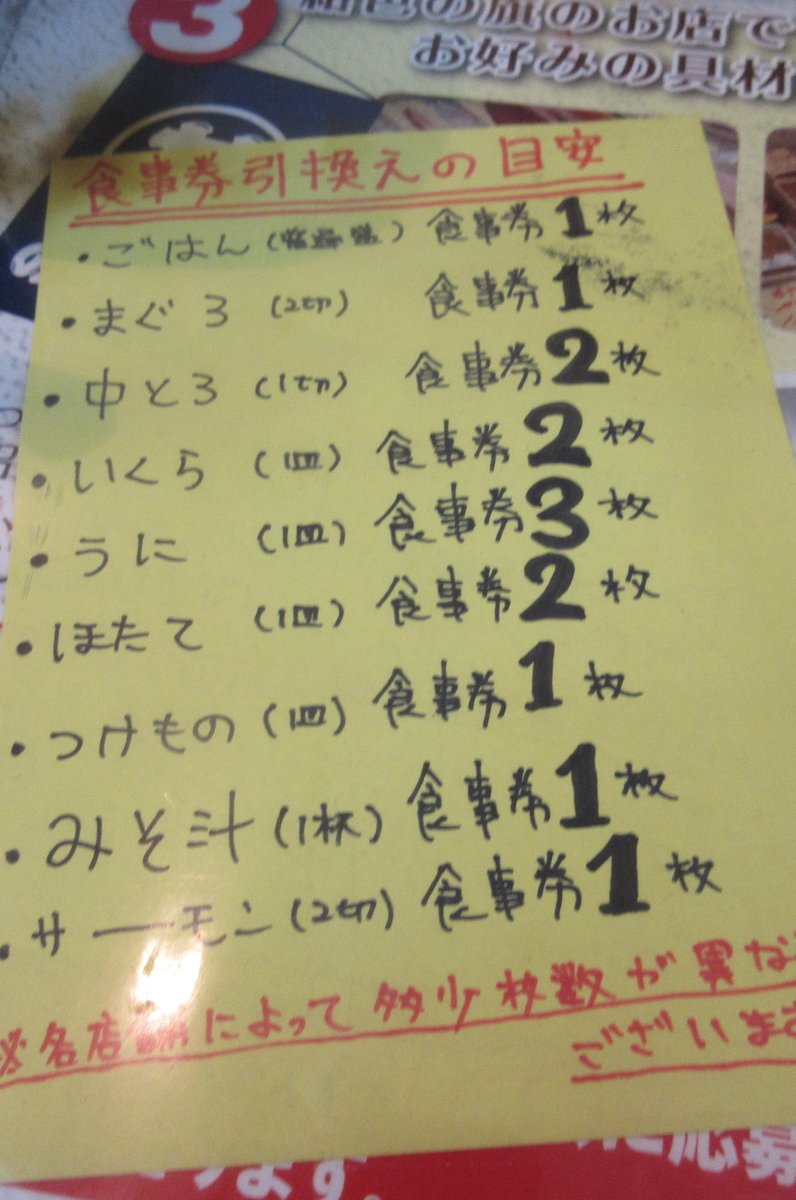 3
紺色の旗のお店で
お好みの具材
食事券引換えの目安
・ごはん( ) 食事券1枚
・まぐろ(2切) 食事券1枚
・中とろ(1切) 食事券2枚
・いくら(1皿) 食事券2枚
・うに(1皿) 食事券3枚
・ほたて(1皿) 食事券2枚
・つけもの(1皿) 食事券1枚
・みそ汁(1杯) 食事券1枚
・サーモン(2切) 食事券1枚
※各店舗によって多少枚数が異な
ございます